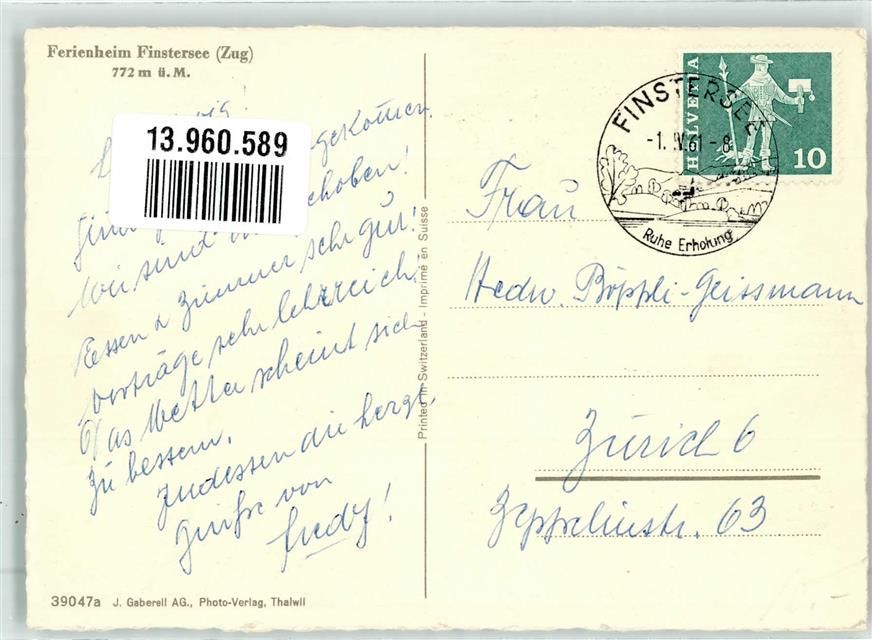 Ferienheim Finstersee (Zug)
772 m ü. M.
13.960.589
gekommen.
choben!
Wir sind
Essen & Zimmer sehr gut!
Vorträge sehr lehrreich!
Das Wetter scheint sich
zu bessern.
Indessen die herzl.
Grüsse von
Printed in Switzerland - Imprimé en Suisse
HELVETIA
10
FINSTERSEE
-1. IV. 61 - 8
Ruhe Erholung
Frau
Hedw. Böppli-Geissmann
Zürich 6
Zeppelinstr. 63
39047a J. Gaberell AG., Photo-Verlag, Thalwil